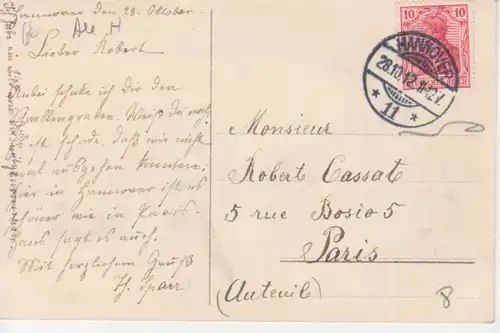 Hannover den 28. Oktober.
Lieber Robert
Anbei schicke ich Dir den
Ballengraben. Weißt du noch,
es ist schade, daß wir nicht
mal ausgehen konnten,
hier in Hannover ist es
schöner wie in Paris.
Hans sagt es auch.
Mit herzlichem Gruß
H. Sparr
10 10
HANNOVER
28.10.12. 11-12V.
* 11 *
Monsieur
Robert Cassat
5 rue Bosio 5
Paris
(Auteuil)
8